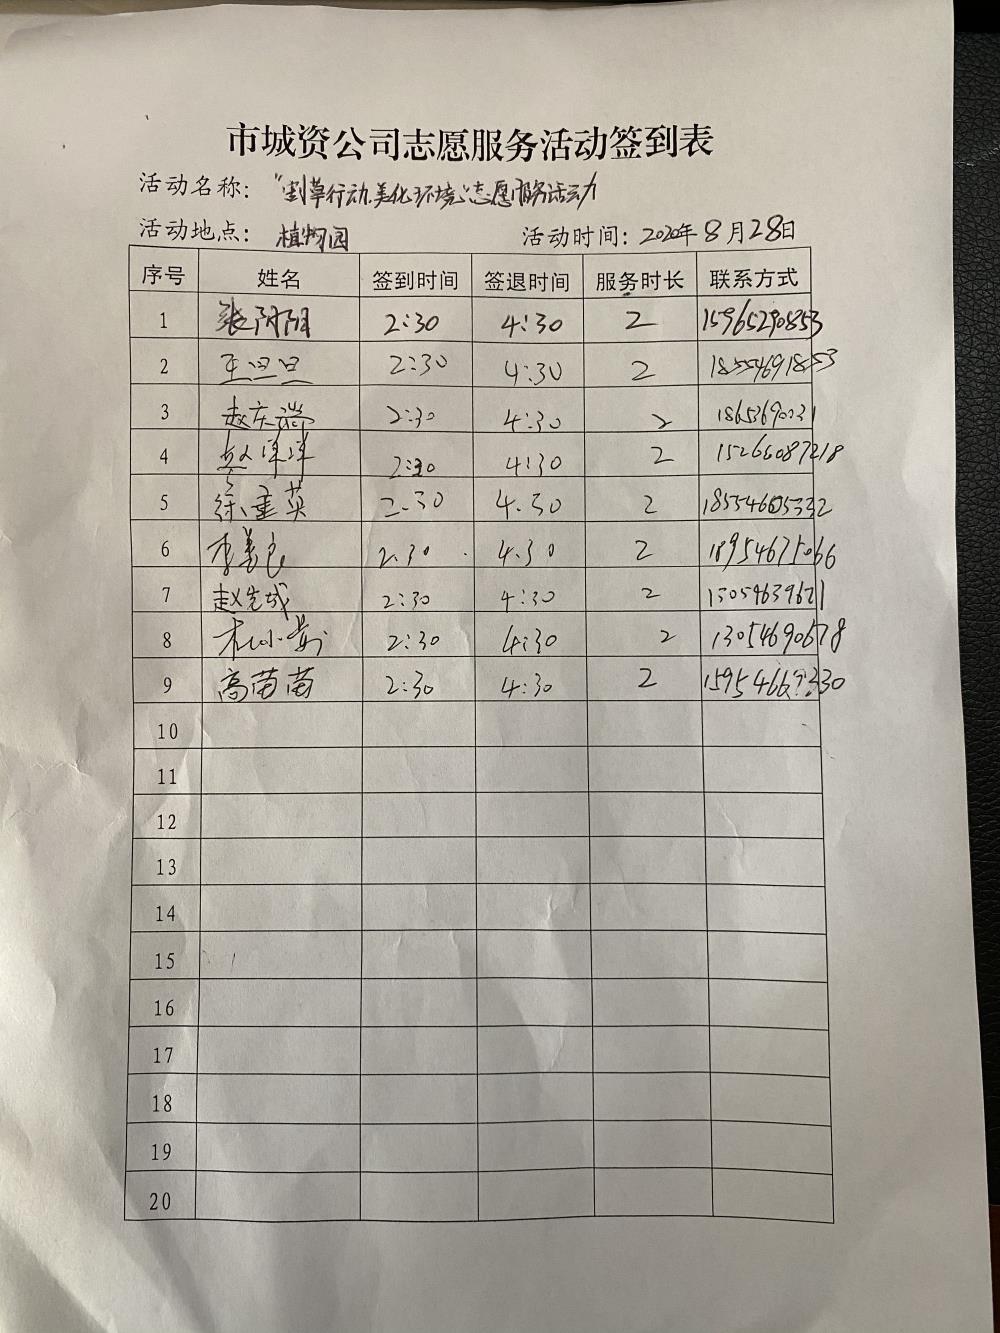 市城资公司志愿服务活动签到表
活动名称：“割草行动，美化环境”志愿服务活动
活动地点：植物园 活动时间：2020年8月28日
序号 姓名 签到时间 签退时间 服务时长 联系方式
1 张阴阴 2:30 4:30 2 15965290853
2 王旦旦 2:30 4:30 2 18554691853
3 赵庆 2:30 4:30 2
4 赵洋洋 2:30 4:30 2 15266087218
5 徐重英 2.30 4.30 2 18554605332
6 李美良 2.30 4.30 2 18954675066
7 赵先城 2:30 4:30 2 13054639621
8 杜小 2:30 4:30 2 13054690678
9 高苗苗 2:30 4:30 2
10
11
12
13
14
15
16
17
18
19
20